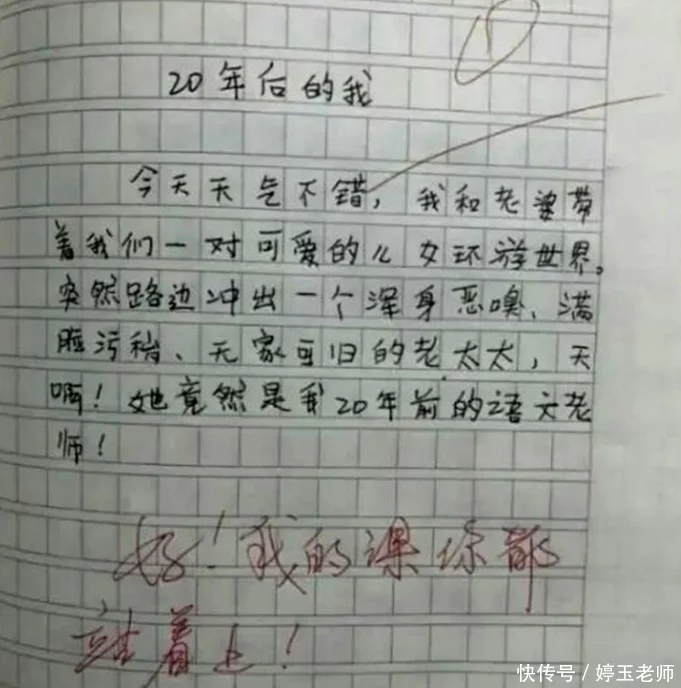 20年后的我
今天天气不错，我和老婆带
着我们一对可爱的儿女环游世界。
突然路边冲出一个浑身恶嗅、满
脸污秽、无家可归的老太太，天
啊！她竟然是我20年前的语文老
师！
好！我的课你都
站着上！
快传号／婷玉老师